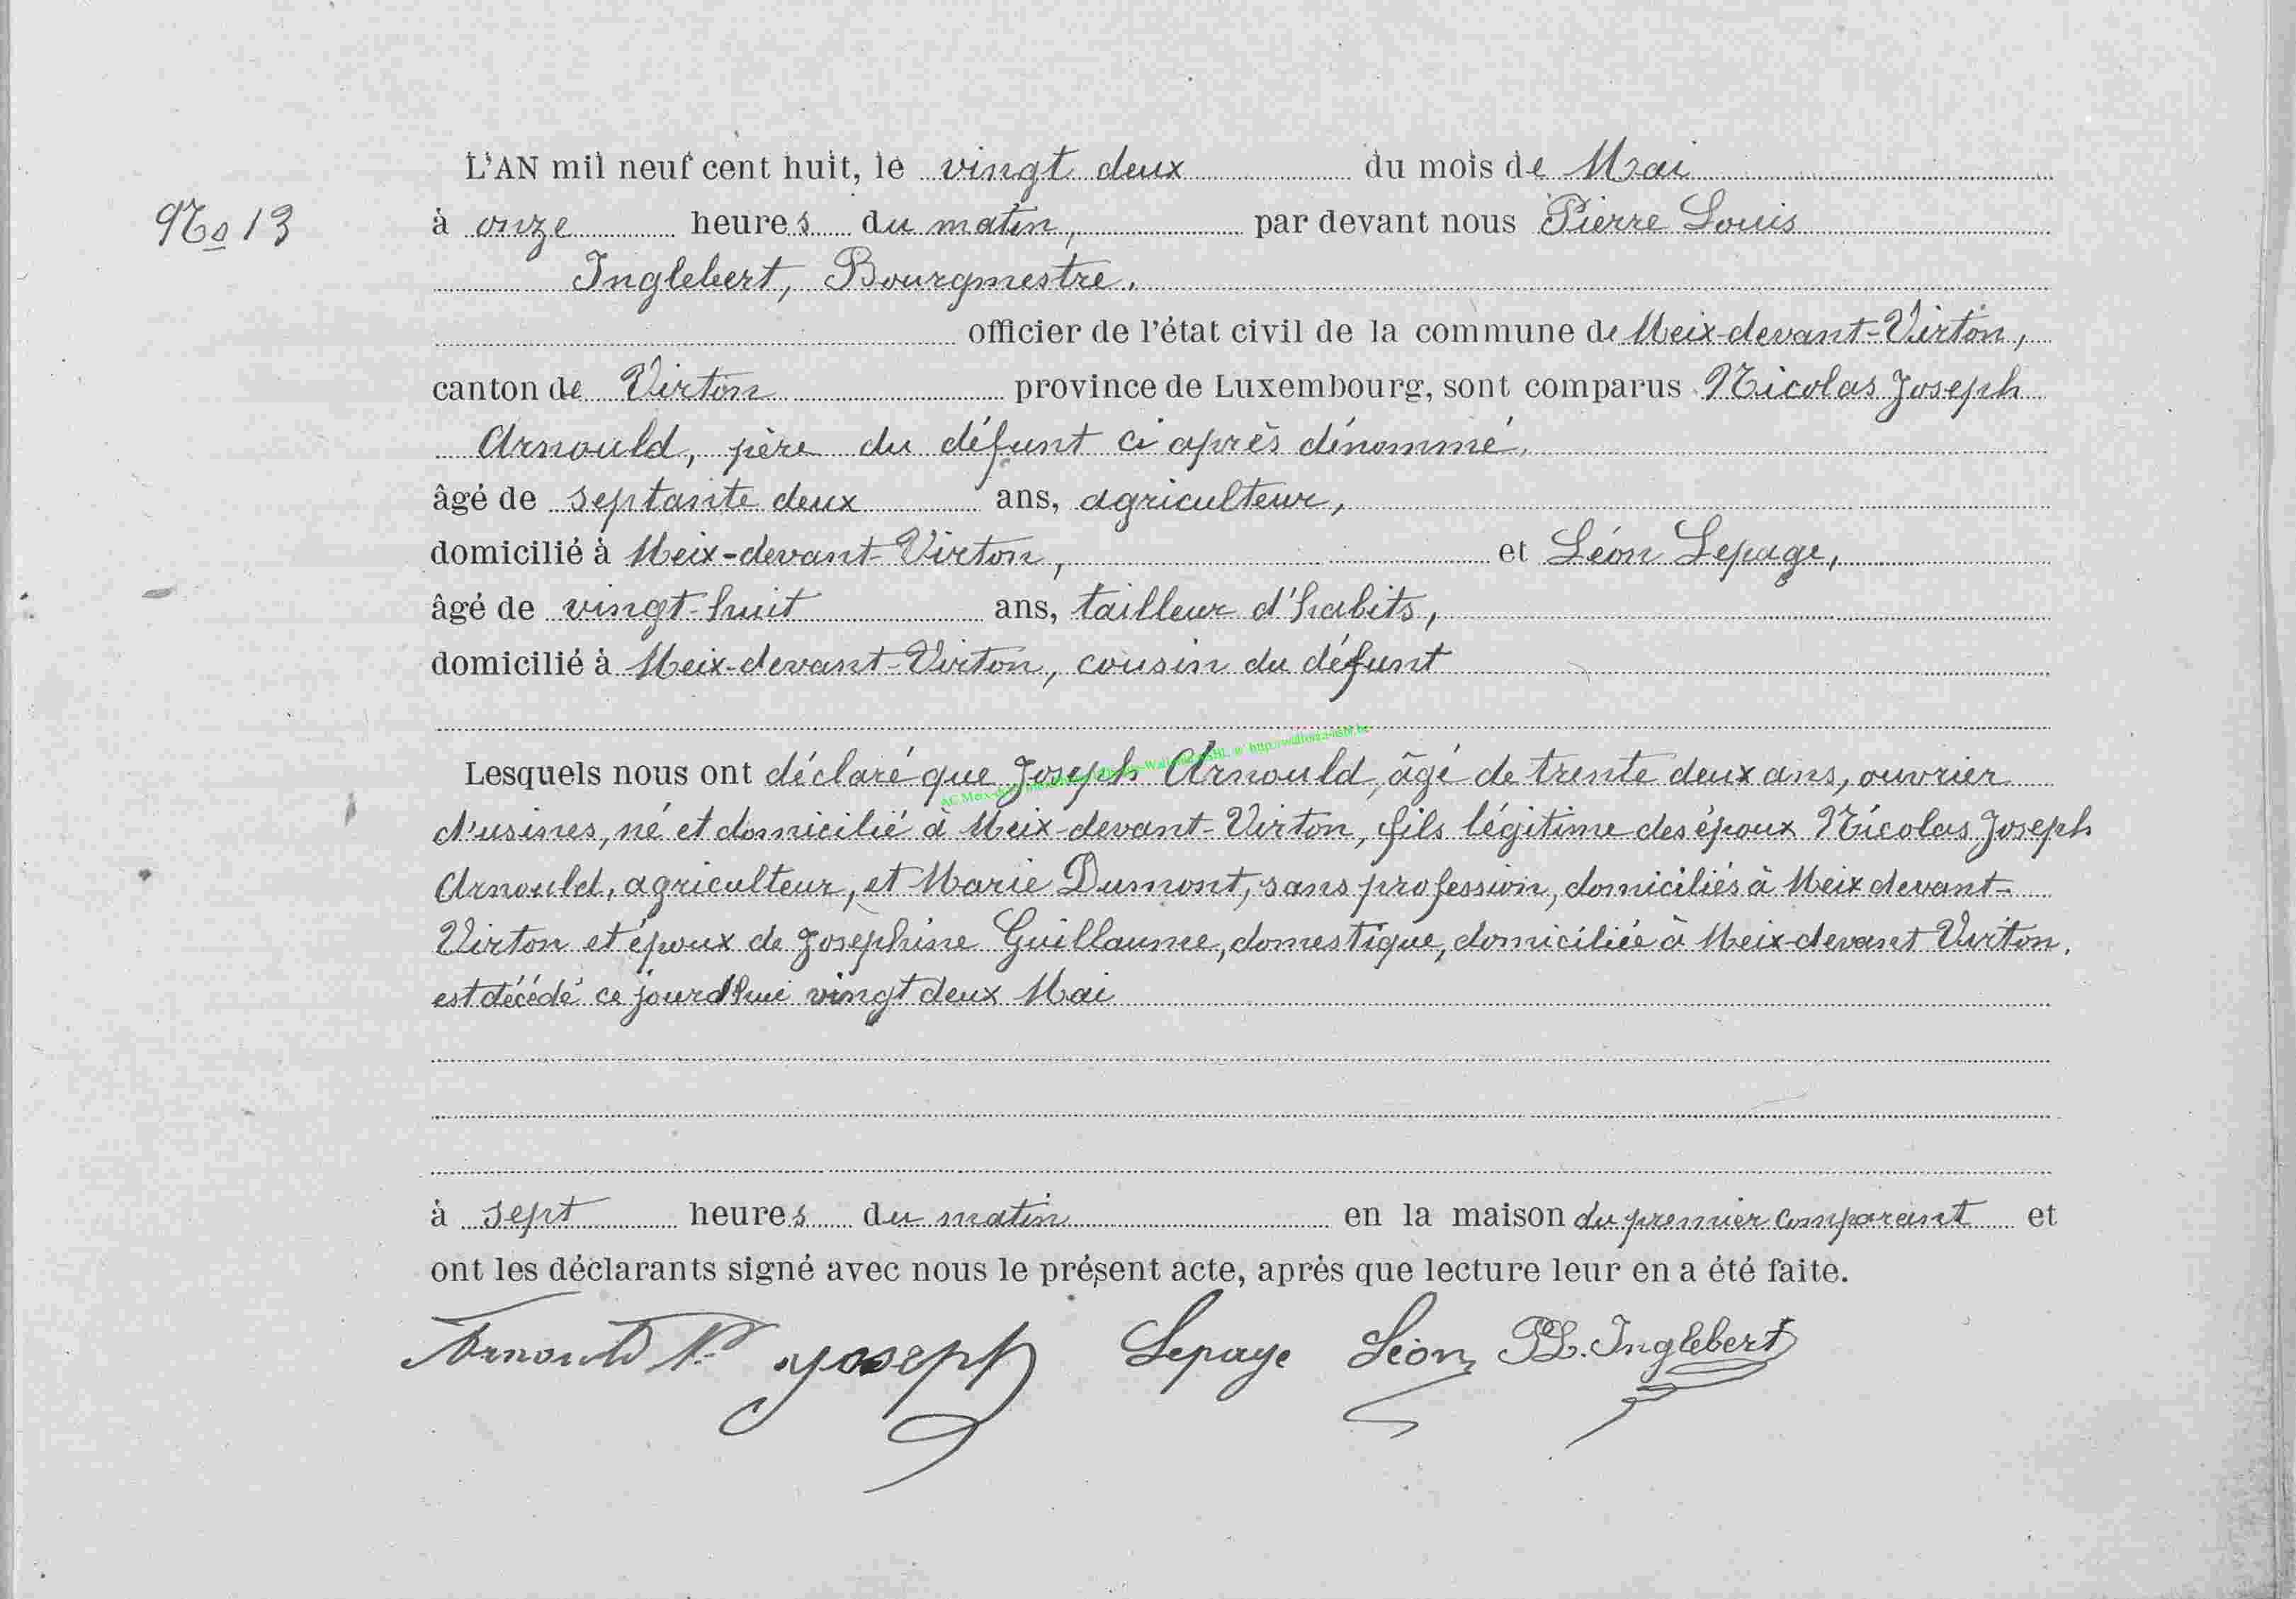 L'AN mil neuf cent huit, le vingt deux du mois de Mai
No 13
à onze heures du matin, par devant nous Pierre Louis
Inglebert, Bourgmestre.
officier de l'état civil de la commune de Meix-devant-Virton,
canton de Virton province de Luxembourg, sont comparus Nicolas Joseph
Arnould, père du défunt ci après dénommé.
âgé de septante deux ans, agriculteur,
domicilié à Meix-devant-Virton, et Léon Lepage,
âgé de vingt-huit ans, tailleur d'habits,
domicilié à Meix-devant-Virton, cousin du défunt
Lesquels nous ont déclaré que Joseph Arnould, âgé de trente deux ans, ouvrier
d'usines, né et domicilié à Meix-devant-Virton, fils légitime des époux Nicolas Joseph
Arnould, agriculteur, et Marie Dumont, sans profession, domiciliés à Meix devant-
Virton et époux de Joséphine Guillaume, domestique, domiciliée à Meix-devant Virton,
est décédé ce jourd'hui vingt deux Mai
à sept heures du matin en la maison du premier comparant et
ont les déclarants signé avec nous le présent acte, après que lecture leur en a été faite.
Arnould N. Joseph Lepage Léon PL. Inglebert